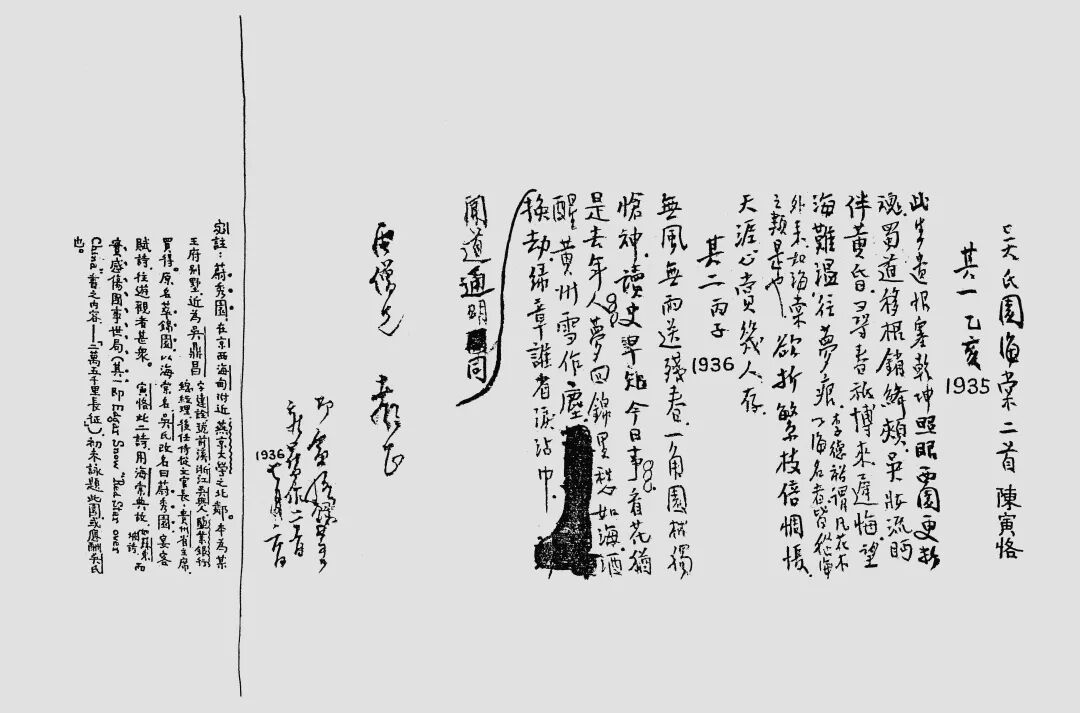 吳氏園海棠二首 陳寅恪
其一 乙亥 1935
此生遺恨塞乾坤。照眼西園更斷
魂。蜀道移根銷絳頰。吳妝流眄
伴黃昏。尋春衹博來遲悔。望
海難溫往夢痕。李德裕謂凡花木以海名者皆從海
外來，如海棠之類是也。欲折繁枝倍惆悵。
天涯心賞幾人存。
其二 丙子 1936
無風無雨送殘春。一角園林獨
愴神。讀史早知今日事。看花猶
是去年人。夢回錦里愁如海。酒
醒黃州雪作塵。
聞道通明同
換劫。綠章誰省淚沾巾。
雨僧兄 教正
1936
宓註：蔚秀園，在京西海甸附近，燕京大學之北鄰。本為某
王府別墅，近為吳鼎昌字達詮，號前溪，浙江吳興人，鹽業銀行
總經理，後任侍從文官長，貴州省主席。
買得。原名萃錦園，以海棠名，吳氏改名曰蔚秀園，宴客
賦詩，往遊觀者甚衆。寅恪此二詩，用海棠典故，而
實感傷國事世局（其一即Edgar Snow "Red Star over
China"書之內容——"二萬五千里長征"），初未詠題此園或應酬吳氏
也。